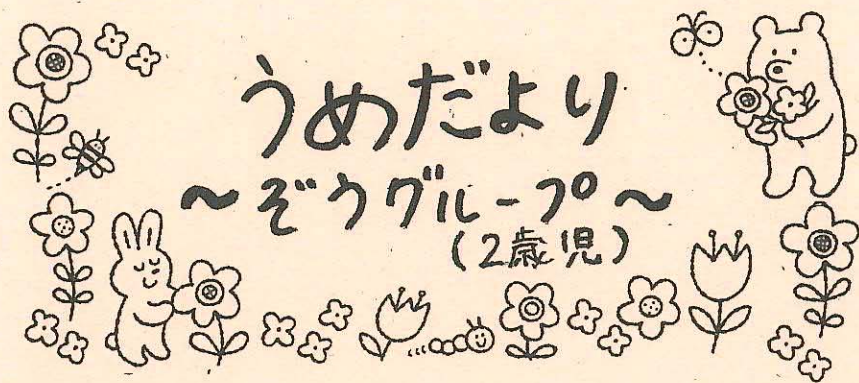 うめだより
～ぞうグループ～
(2歳児)